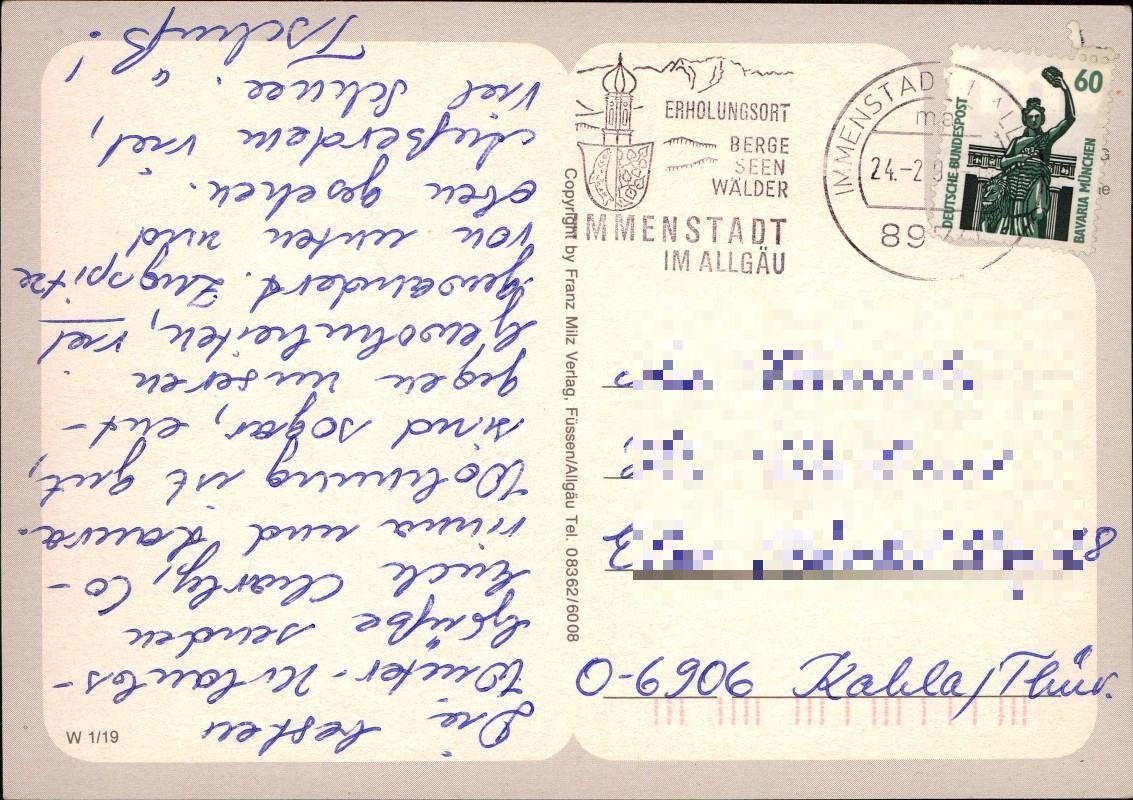 Die besten
Winter-Urlaubs-
Grüße senden
Euch Charly, Co-
rinna und Laura.
Wohnung ist gut,
sind sogar, ent-
gegen unseren
Gewohnheiten, viel
gewandert. Zugspitze
von unten und
oben gesehen.
Außerdem viel,
viel Schnee.
Tschüß!
W 1/19
Copyright by Franz Milz Verlag, Füssen/Allgäu Tel. 08362/6008
ERHOLUNGSORT
BERGE
SEEN
WÄLDER
IMMENSTADT
IM ALLGÄU
IMMENSTADT
24.-2
89
60
DEUTSCHE BUNDESPOST
BAVARIA MÜNCHEN
O-6906 Kahla/Thür.